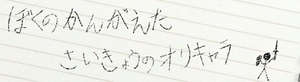 ぼくのかんがえた
さいきょうのオリキャラ